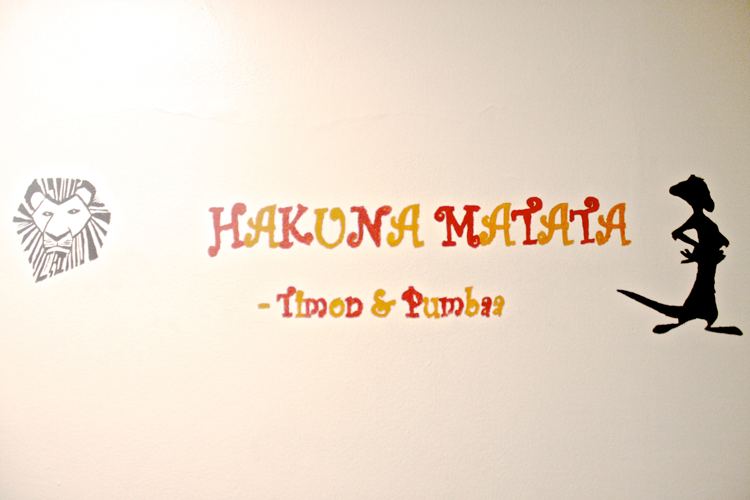 HAKUNA MATATA
- Timon & Pumbaa